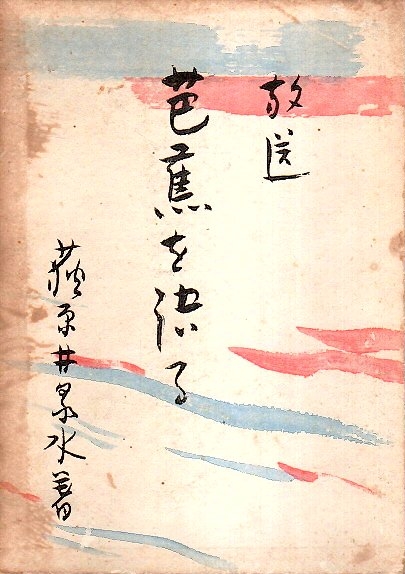 放送
芭蕉を語る
荻原井泉水著